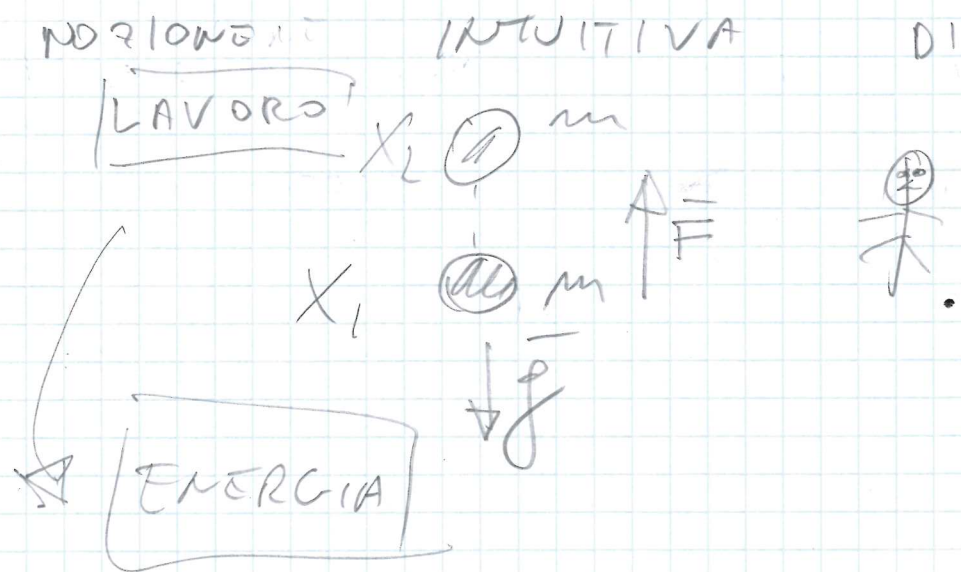 NOZIONE INTUITIVA DI
LAVORO
X₂ m
F
X₁ m
g
ENERGIA